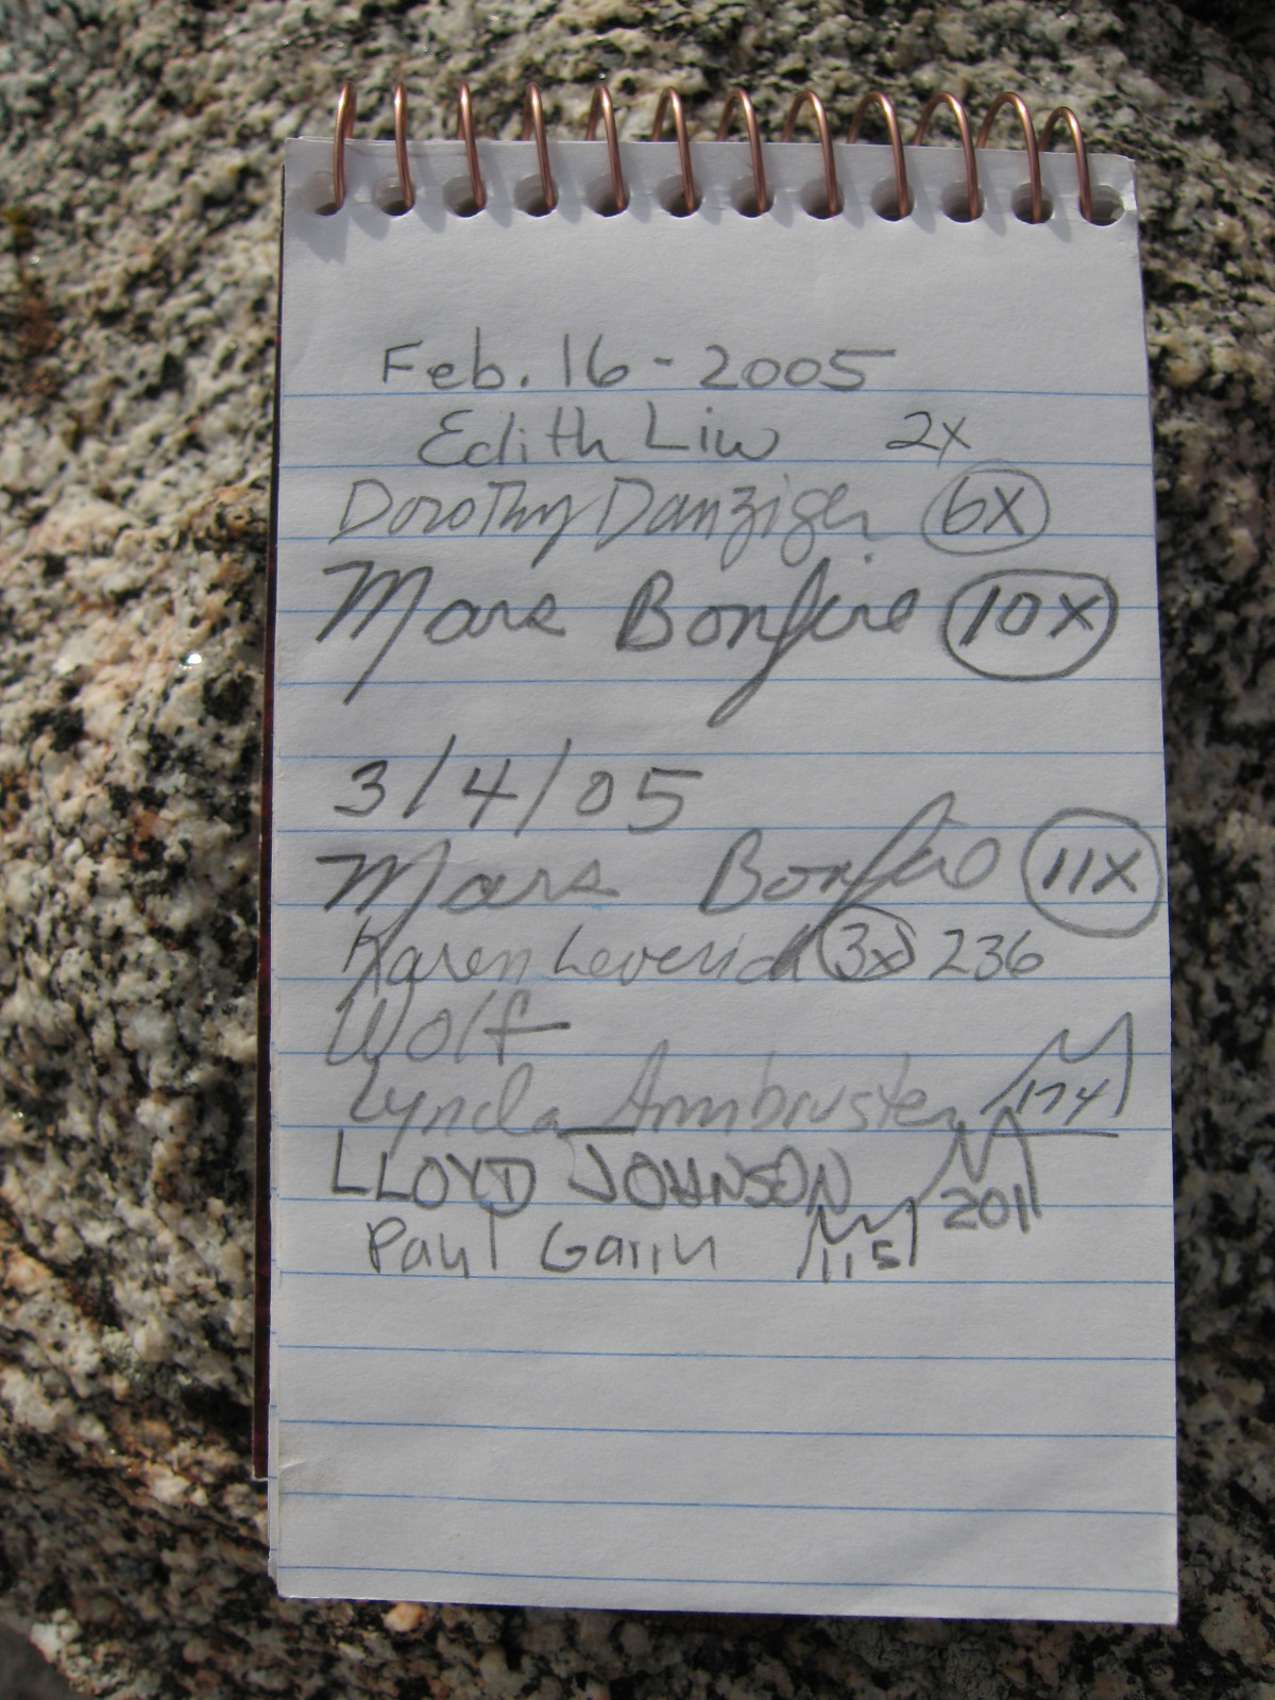 Feb. 16 - 2005
Edith Liu 2x
Dorothy Danziger 6x
Mars Bonfire 10x
3/4/05
Mars Bonfire 11x
Karen Leverich 3x 236
Wolf
Lynda Armbruster 174
LLOYD JOHNSON 201
Paul Garry 115